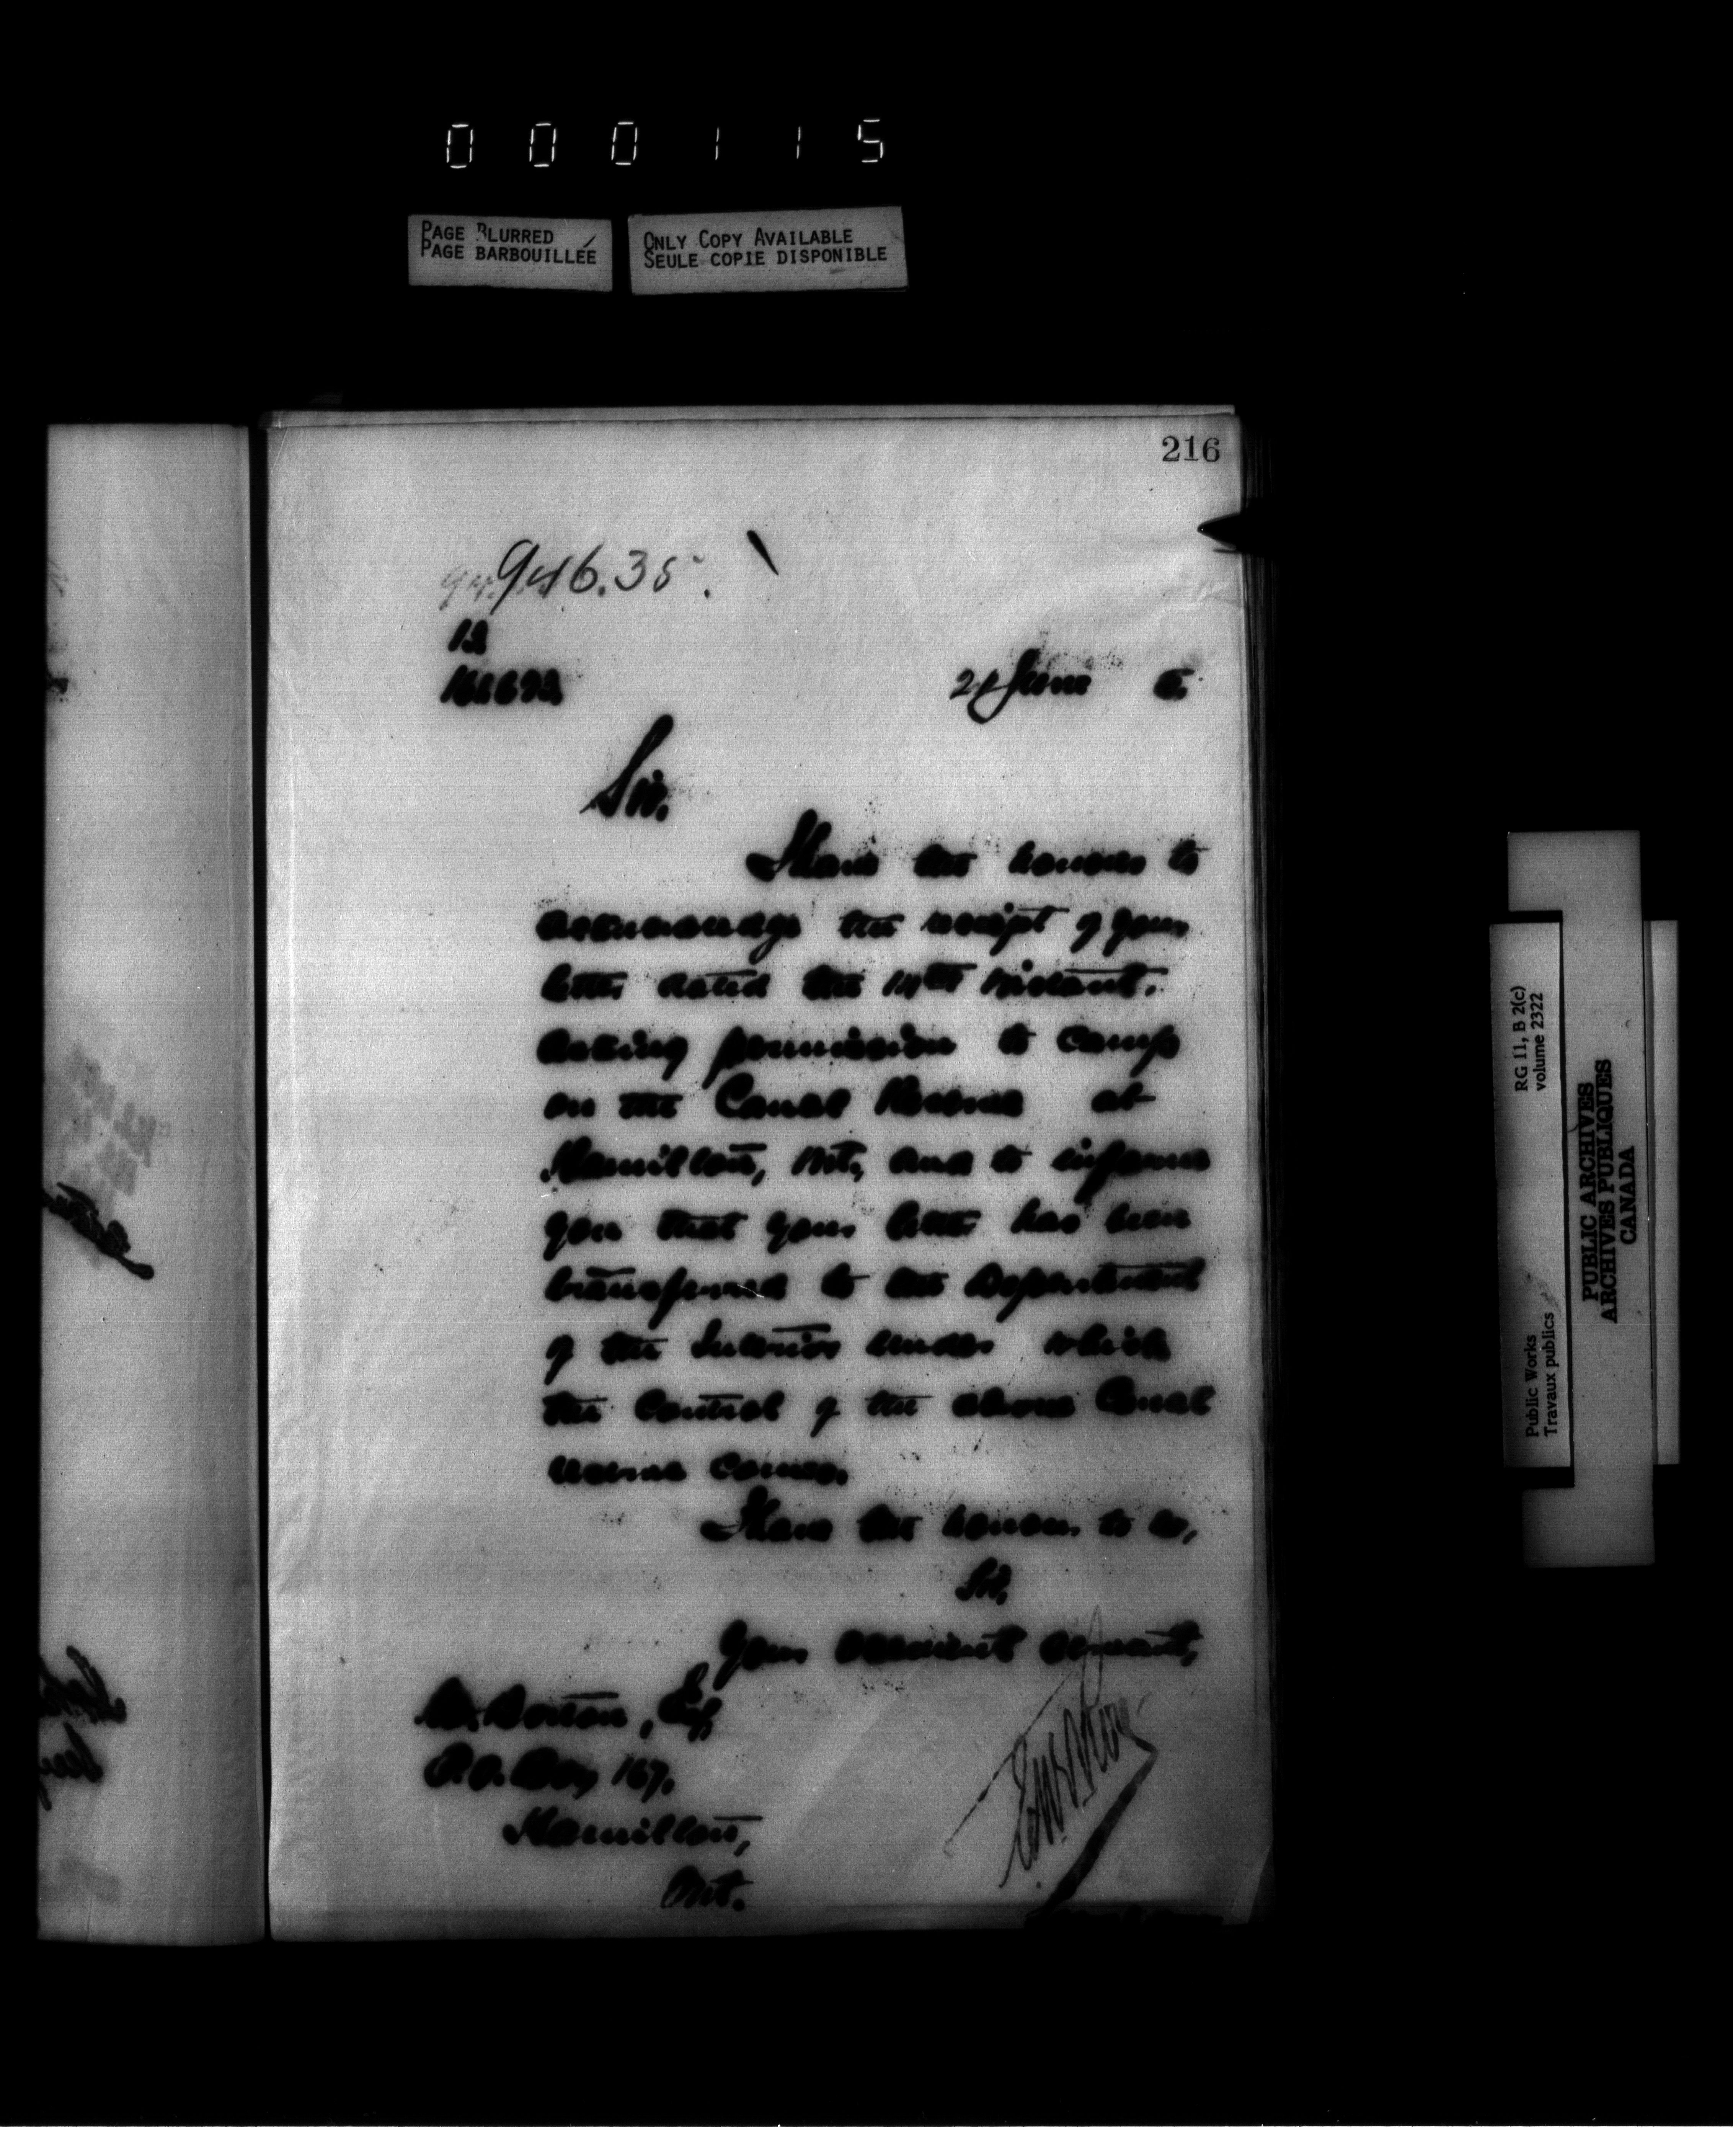 000115
PAGE BLURRED
PAGE BARBOUILLÉE
ONLY COPY AVAILABLE
SEULE COPIE DISPONIBLE
216
946.35.
12
21 June 5.
Sir,
I have the honour to
acknowledge the receipt of your
letter dated the 14th instant,
asking permission to camp
on the Canal Reserve at
Hamilton, Ont., and to inform
you that your letter has been
transferred to the Department
of the Interior under which
the control of the above Canal
reserve comes.
I have the honour to be,
Sir,
Your obedient servant,
Esq
P.O. Box 167,
Hamilton,
Ont.
RG 11, B 2(c)
volume 2322
Public Works
Travaux publics
PUBLIC ARCHIVES
ARCHIVES PUBLIQUES
CANADA